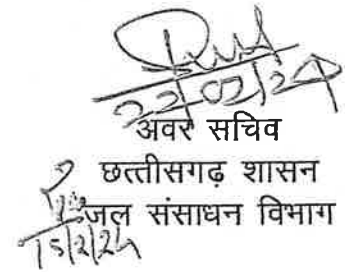 22/02/24
अवर सचिव
छत्तीसगढ़ शासन
जल संसाधन विभाग
15/2/24